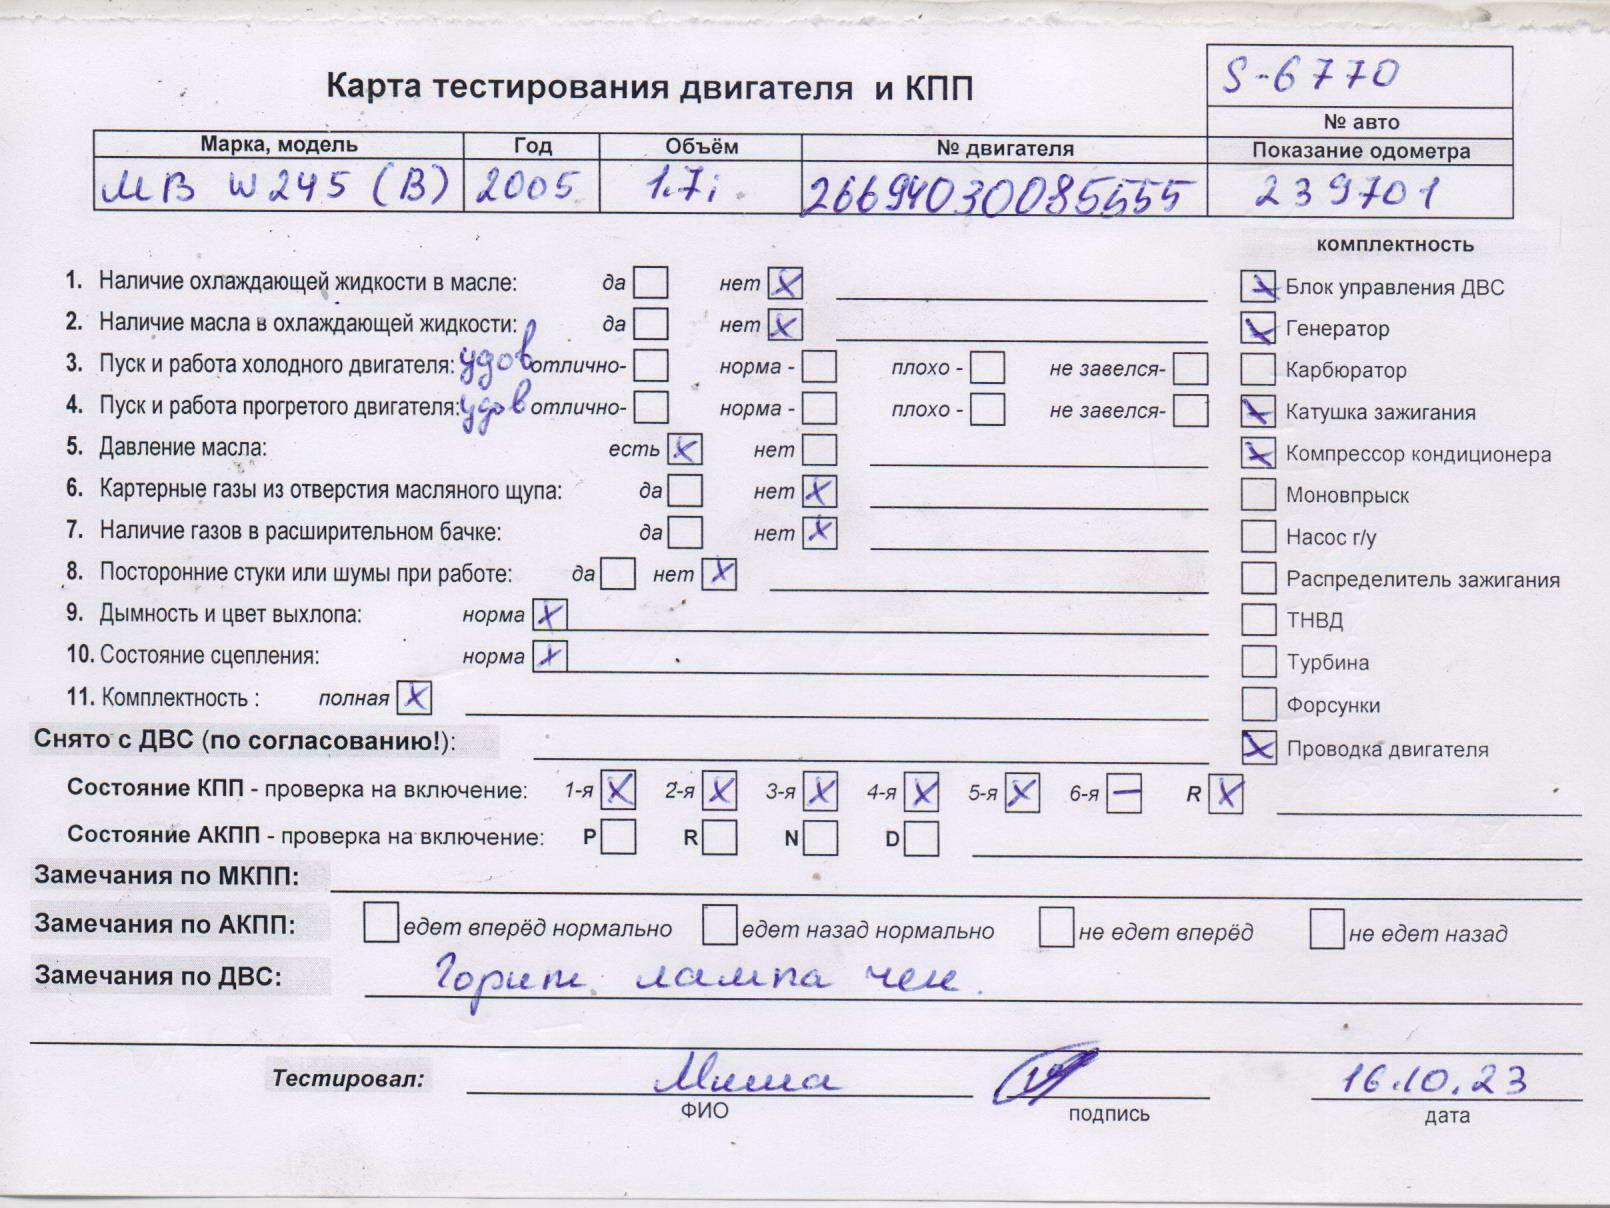 S-6770
Карта тестирования двигателя и КПП
№ авто
Марка, модель Год Объём № двигателя Показание одометра
МВ W245 (В) 2005 1.7i 26694030085555 239701
комплектность
1. Наличие охлаждающей жидкости в масле: да нет X
X Блок управления ДВС
2. Наличие масла в охлаждающей жидкости: да нет X
X Генератор
3. Пуск и работа холодного двигателя: удов отлично- норма - плохо - не завелся-
Карбюратор
4. Пуск и работа прогретого двигателя: удов отлично- норма - плохо - не завелся-
X Катушка зажигания
5. Давление масла: есть X нет
X Компрессор кондиционера
6. Картерные газы из отверстия масляного щупа: да нет X
Моновпрыск
7. Наличие газов в расширительном бачке: да нет X
Насос г/у
8. Посторонние стуки или шумы при работе: да нет X
Распределитель зажигания
9. Дымность и цвет выхлопа: норма X
ТНВД
10. Состояние сцепления: норма X
Турбина
11. Комплектность : полная X
Форсунки
Снято с ДВС (по согласованию!):
X Проводка двигателя
Состояние КПП - проверка на включение: 1-я X 2-я X 3-я X 4-я X 5-я X 6-я – R X
Состояние АКПП - проверка на включение: P R N D
Замечания по МКПП:
Замечания по АКПП: едет вперёд нормально едет назад нормально не едет вперёд не едет назад
Замечания по ДВС: Горит лампа чек.
Тестировал: Миша 16.10.23
ФИО подпись дата